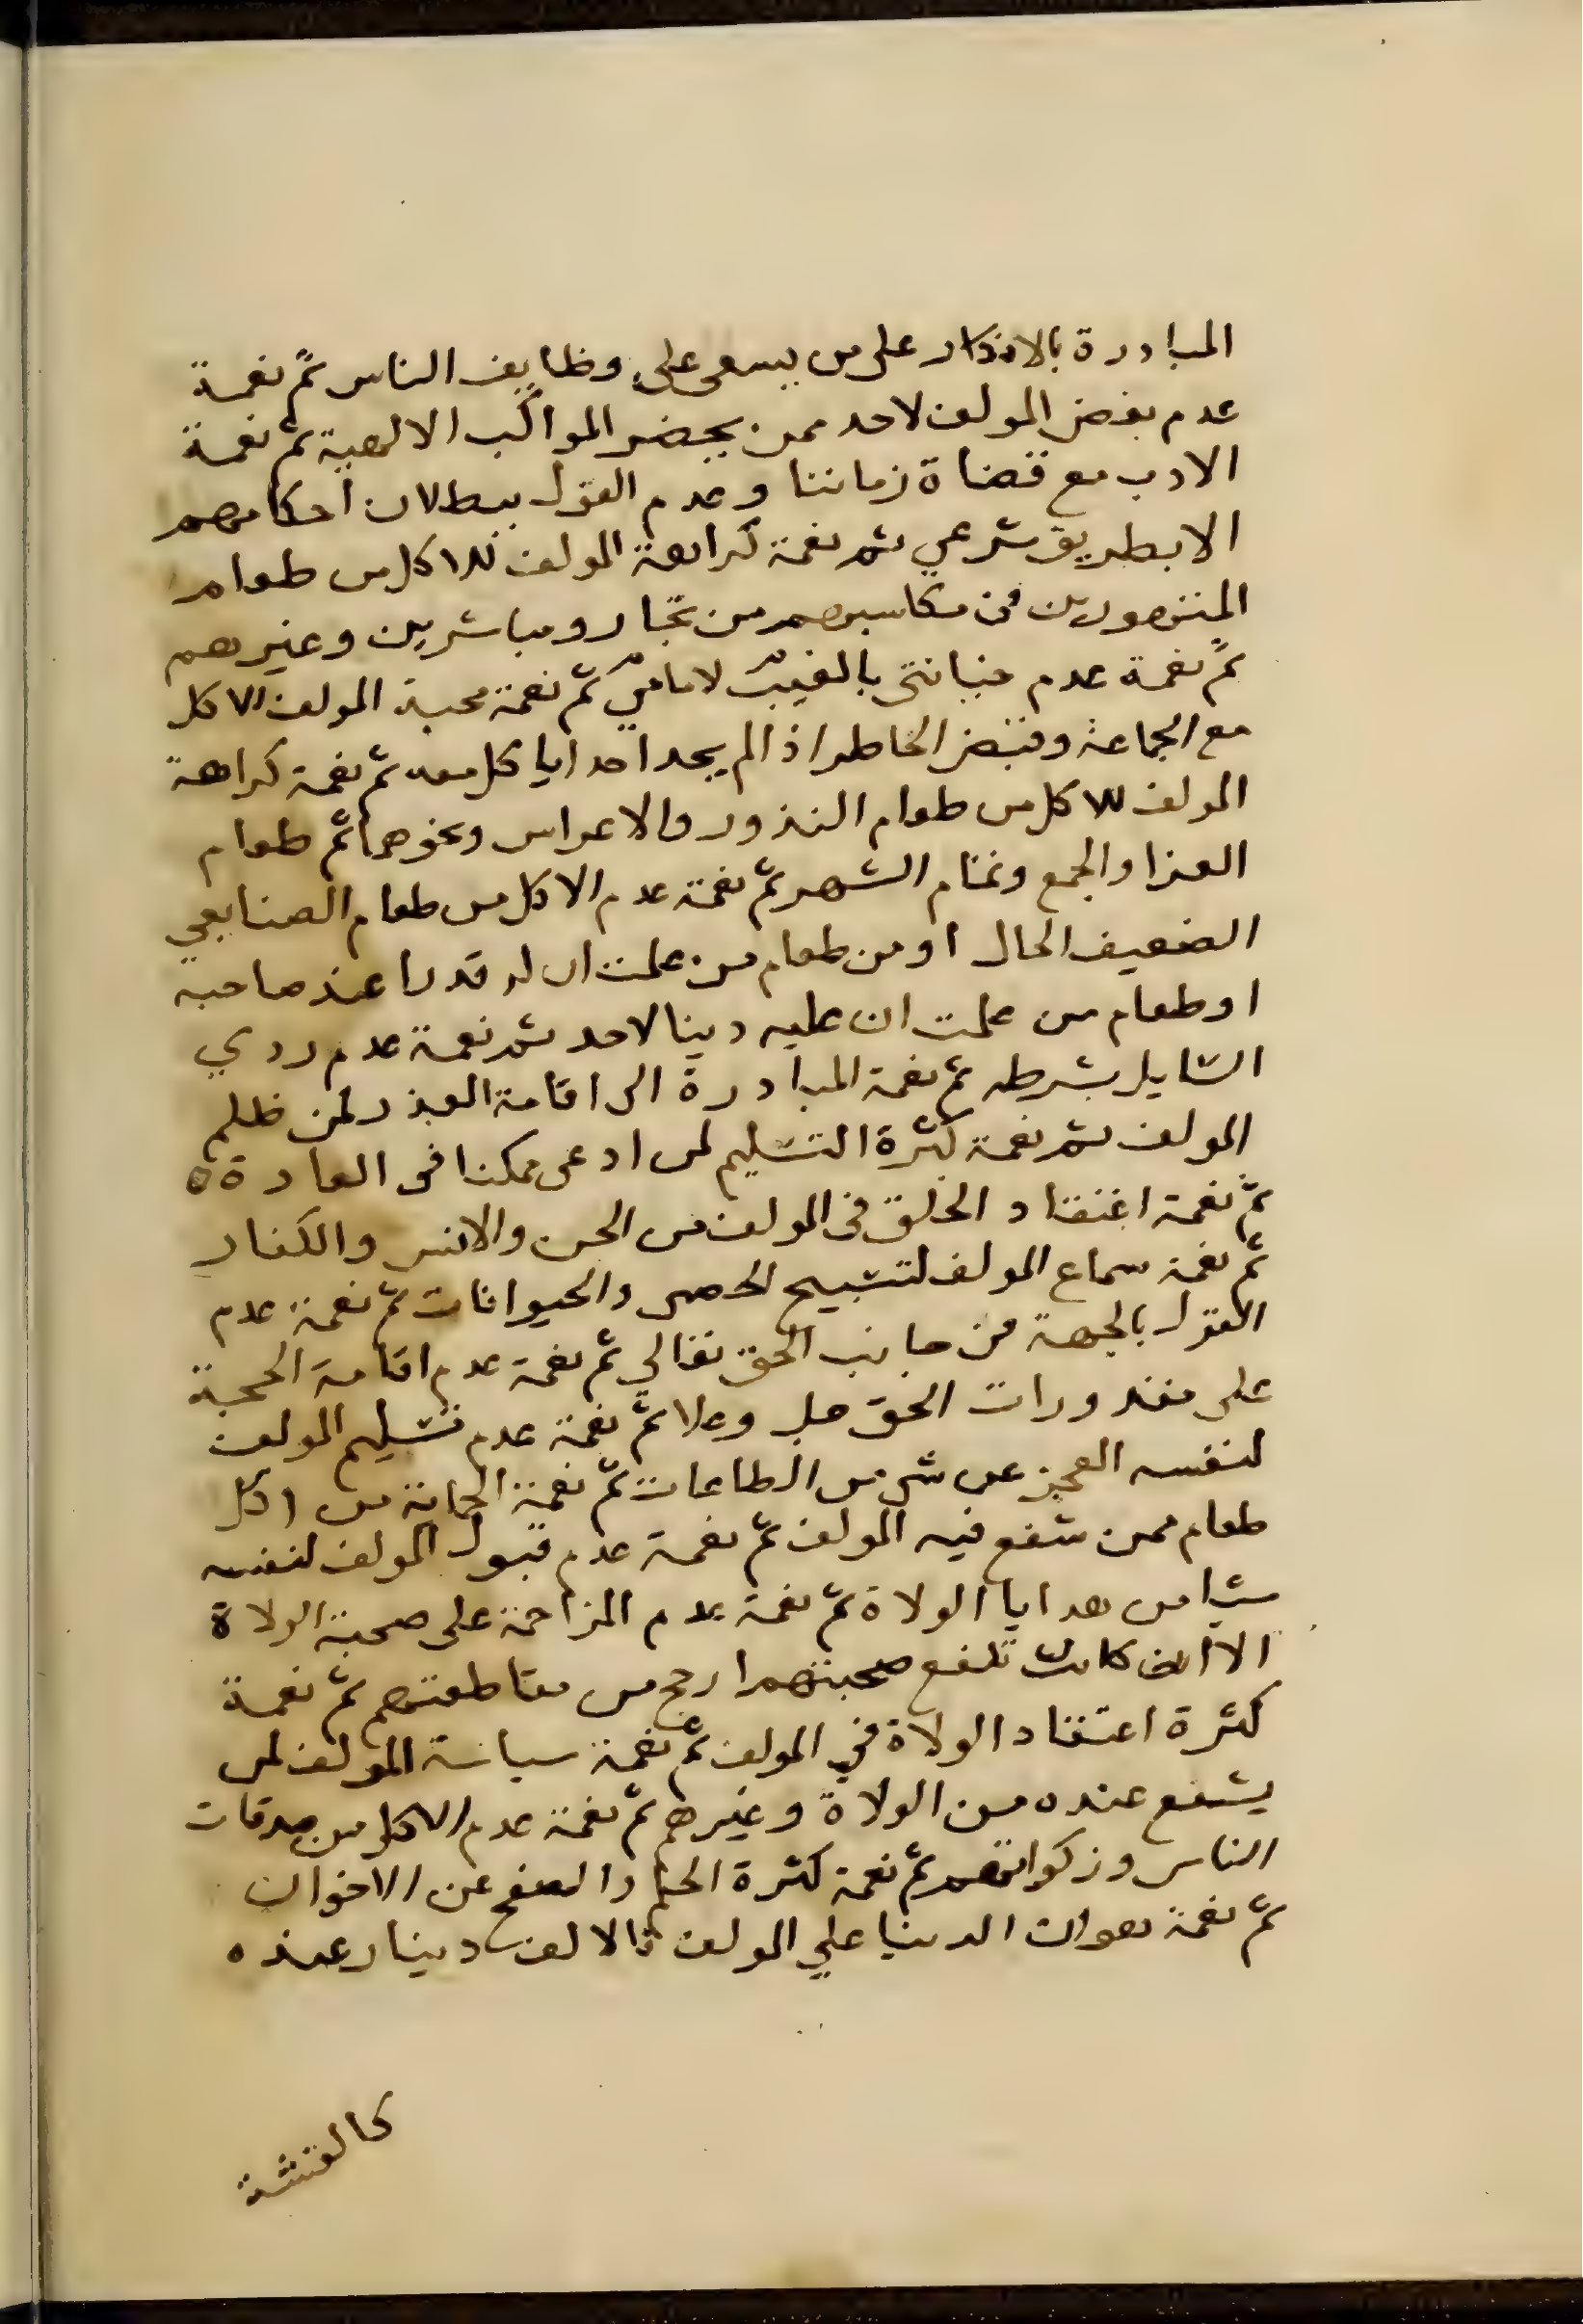 المبادرة بالانكار على من يسعى على وظايف الناس ثم نعمة
عدم بغض المولف لاحد ممن يحضر المواكب الالهية ثم نعمة
الادب مع قضاة زماننا وعدم القول ببطلان احكامهم
الا بطريق شرعي ثم نعمة كراهة المولف للاكل من طعام
المتهورين في مكاسبهم من تجار ومباشرين وغيرهم
ثم نعمة عدم خيانتي بالغيب لامامي ثم نعمة محبة المولف الاكل
مع الجماعة وقبض الخاطر اذا لم يجد احدا ياكل معه ثم نعمة كراهة
المولف للاكل من طعام النذور والاعراس ونحوهما ثم طعام
العزا والجمع وتمام الشهر ثم نعمة عدم الاكل من طعام الصنايعي
الضعيف الحال او من طعام من علمت ان له قدرا عند صاحبه
او طعام من علمت ان عليه دينا لاحد ثم نعمة عدم ردي
السايل بشرطه ثم نعمة المبادرة الى اقامة العذر لمن ظلم
المولف ثم نعمة كثرة التسليم لمن ادعى ممكنا فى العادة
ثم نعمة اعتقاد الخلق فى المولف من الجن والانس والكفار
ثم نعمة سماع المولف لتسبيح الحصى والحيوانات ثم نعمة عدم
القول بالجهة من جانب الحق تعالي ثم نعمة عدم اقامة الحجة
على مقدورات الحق جل وعلا ثم نعمة عدم تسليم المولف
لنفسه العجز عن شي من الطاعات ثم نعمة الحماية من اكل
طعام ممن شفع فيه المولف ثم نعمة عدم قبول المولف لنفسه
شيا من هدايا الولاة ثم نعمة عدم المزاحمة على صحبة الولاة
الا ان كانت تنفع صحبتهم ارجح من مقاطعتهم ثم نعمة
كثرة اعتقاد الولاة في المولف ثم نعمة سياسة المولف لمن
يشفع عنده من الولاة وغيرهم ثم نعمة عدم الاكل من صدقات
الناس وزكواتهم ثم نعمة كثرة الحلم والصفح عن الاخوان
ثم نعمة هوان الدنيا علي المولف فالالف دينار عنده
كالقشة